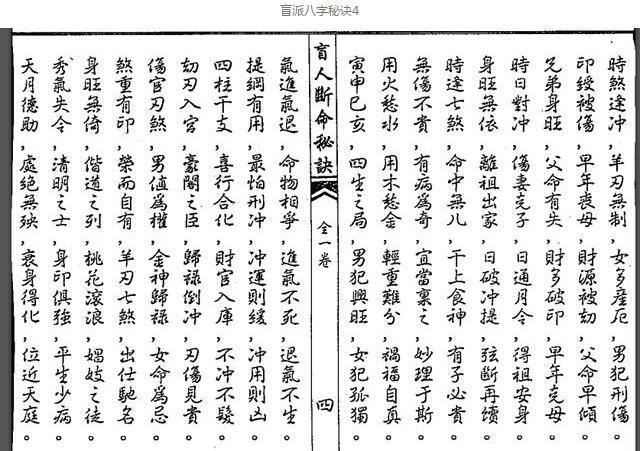 盲派八字秘诀4
時煞逢冲,羊刃無制,女多産厄,男犯刑傷。
印綬被傷,早年喪母,財源被劫,父命早傾。
兄弟身旺,父命有失,財多破印,早年尅母。
時日對冲,傷妻尅子,日通月令,得祖安身。
身旺無依,離祖出家,日破冲提,弦斷再續。
時逢七煞,命中無儿,干上食神,有子必貴。
無傷不貴,有病爲奇,宜當裏之,妙理于斯。
用火愁水,用木愁金,輕重難分,禍福自真。
寅申巳亥,四生之局,男犯興旺,女犯孤獨。
盲人斷命秘訣
全一卷
四
氣進氣退,命物相爭,進氣不死,退氣不生。
提綱有用,最怕刑冲,冲運則緩,冲用則凶
四柱干支,喜行合化,財官入庫,不冲不發。
劫刃入宫,豪閣之臣,歸祿倒冲,刃傷見貴
傷官刃煞,男值爲權,金神歸祿,女命爲忌
煞重有印,榮而自有,羊刃七煞,出仕馳名
身旺無倚,偕道之列,桃花滾浪,娼妓之徒
秀氣失令,清明之士,身印俱强,平生少病
天月德助,處絶無殃,衰身得化,位近天庭。